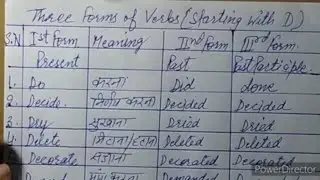 Three forms of Verbs (Starting With D)
S.N Ist form Meaning IInd form IIIrd form
Present Past Past Participle
1. Do करना Did done
2. Decide. निर्णय करना Decided Decided
3. Dry सुखाना Dried Dried
4. Delete मिटाना/हटाना Deleted Deleted
Decorate सजाना Decorated Decorated
Demanded
PowerDirector